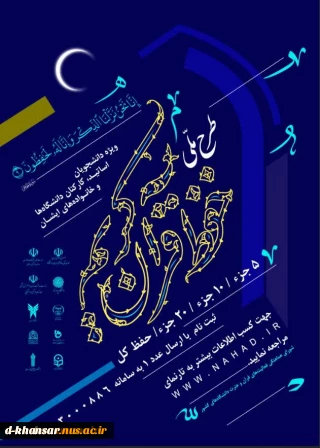 إِنَّا نَحْنُ نَزَّلْنَا الذِّكْرَ وَإِنَّا لَهُ لَحَافِظُونَ
طرح ملی
حفظ قرآن کریم
ویژه دانشجویان
اساتید، کارکنان دانشگاه‌ها
و خانواده‌های ایشان
۵ جزء / ۱۰ جزء / ۲۰ جزء / حفظ کل
ثبت نام با ارسال عدد ۱ به سامانه ۲۰۰۰۰۸۸۶
جهت کسب اطلاعات بیشتر به تارنمای
WWW.NAHAD.IR
مراجعه نمایید.
d-khansar.nus.ac.ir